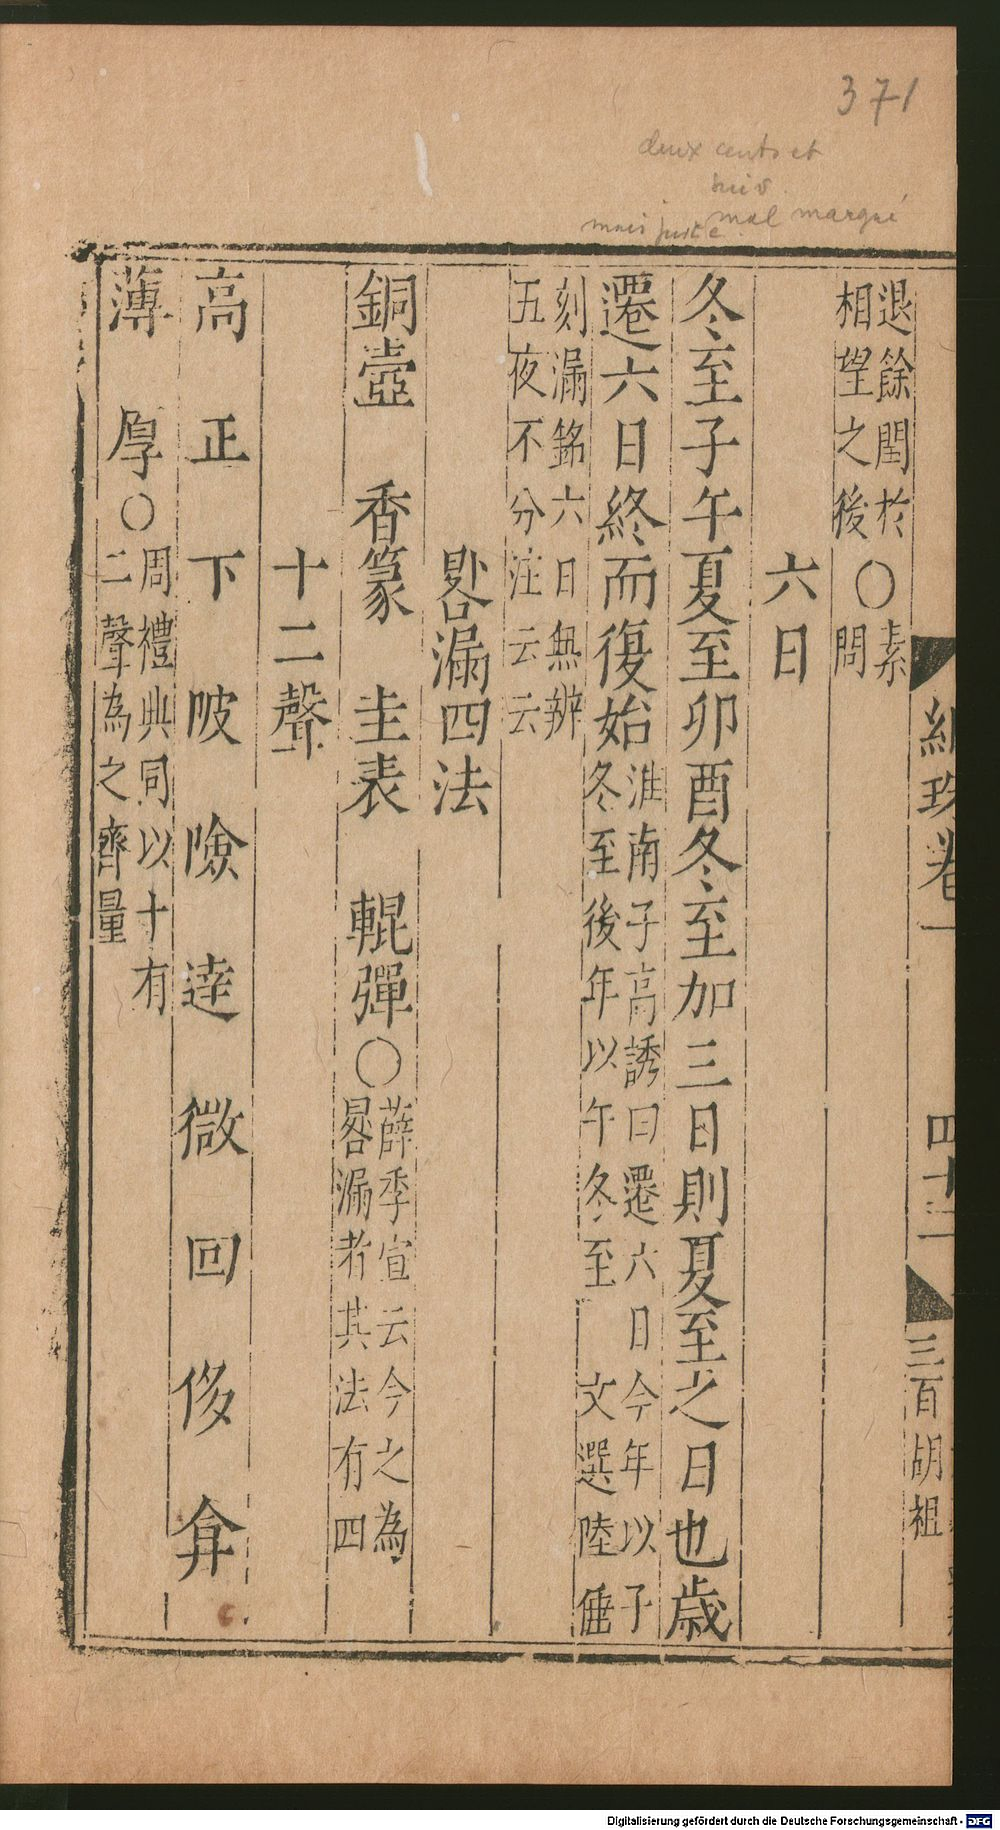 371
deux cents et
mal marqué
mais juste.
退餘閏於
相望之後
○
素
問
六日
冬至子午夏至卯酉冬至加三日則夏至之日也歲
遷六日終而復始
淮南子高誘曰遷六日今年以子
冬至後年以午冬至 文選陸倕
刻漏銘六日無辨
五夜不分注云云
晷漏四法
銅壺 香篆 圭表 輥彈○
薛季宣云今之為
晷漏者其法有四
十二聲
高 正 下 陂 險 達 微 回 侈 弇
薄 厚○
周禮典同以十有
二聲為之齊量
紺珠卷一
四十二
三百胡祖
Digitalisierung gefördert durch die Deutsche Forschungsgemeinschaft - DFG